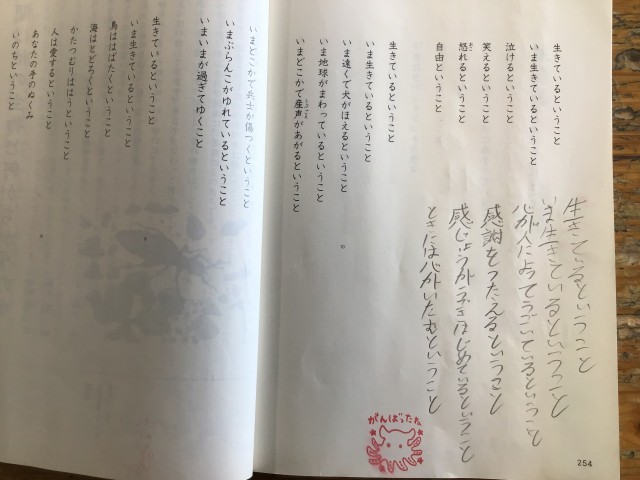 生きているということ
いま生きているということ
泣けるということ
笑えるということ
怒れるということ
自由ということ
生きているということ
いま生きているということ
いま遠くで犬がほえるということ
いま地球がまわっているということ
いまどこかで産声があがるということ
いまどこかで兵士が傷つくということ
いまぶらんこがゆれているということ
いまいまが過ぎてゆくこと
生きているということ
いま生きているということ
鳥ははばたくということ
海はとどろくということ
かたつむりははうということ
人は愛するということ
あなたの手のぬくみ
いのちということ
生きているということ
いま生きているということ
心が人によってうごいているということ
感謝をつたえるということ
感じょうがうごきはじめているということ
ときには心がいたむということ
がんばったね
254